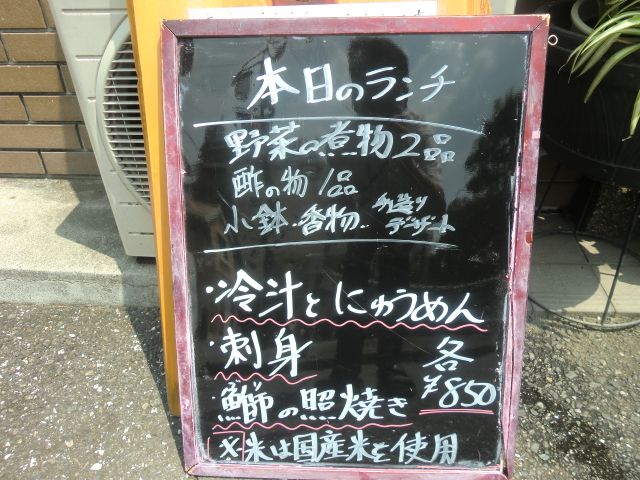 本日のランチ
野菜の煮物2品
酢の物1品
小鉢・香物・手造りデザート
・冷汁とにゅうめん
・刺身
・鰤の照焼き
各¥850
※米は国産米を使用